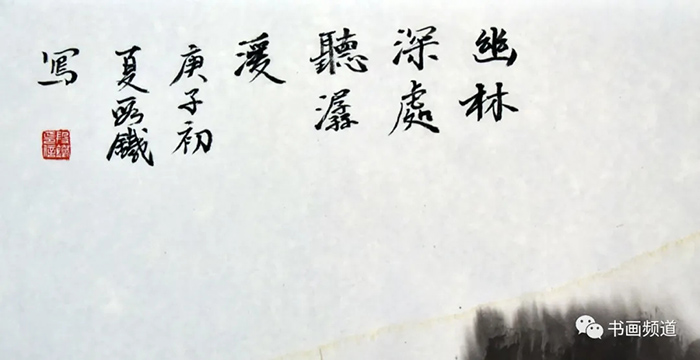 幽林
深處
聽潺
湲
庚子初
夏鐵
寫
书画频道